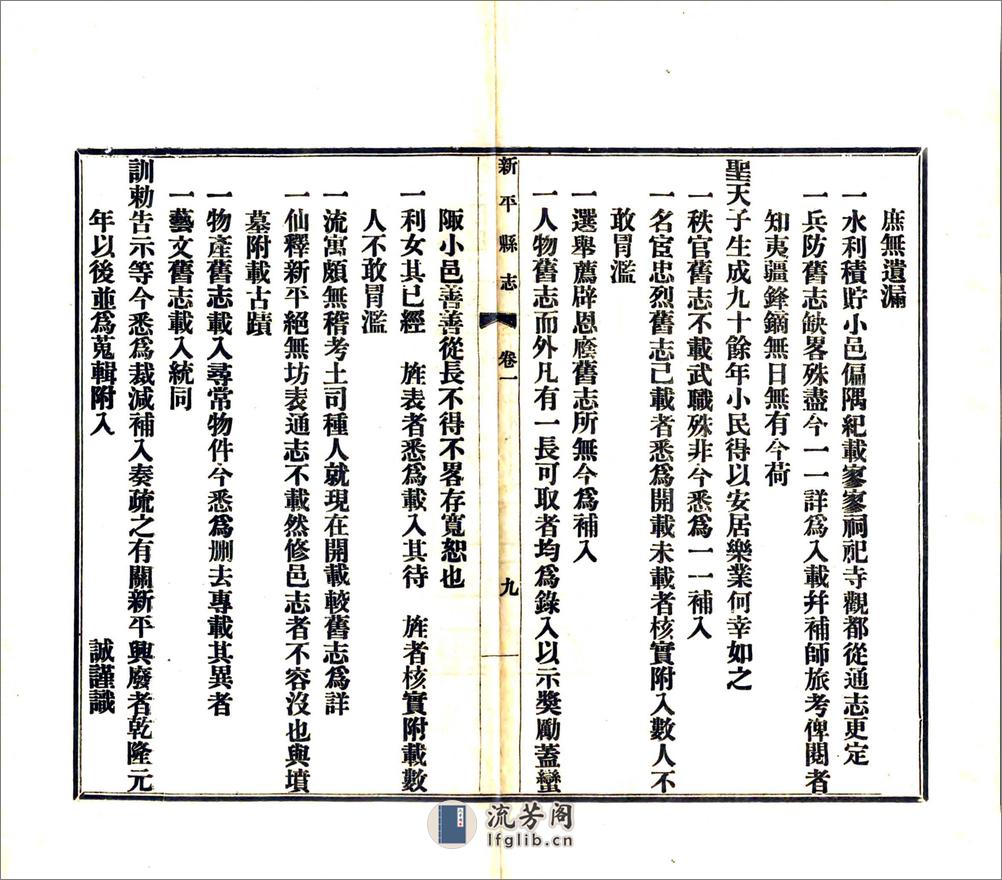 庶無遺漏
一水利積貯小邑偏隅紀載寥寥祠祀寺觀都從通志更定
一兵防舊志缺畧殊盡今一一詳爲入載幷補師旅考俾閱者
知夷疆鋒鏑無日無有今荷
聖天子生成九十餘年小民得以安居樂業何幸如之
一秩官舊志不載武職殊非今悉爲一一補入
一名宦忠烈舊志已載者悉爲開載未載者核實附入數人不
敢冒濫
一選舉薦辟恩廕舊志所無今爲補入
一人物舊志而外凡有一長可取者均爲錄入以示獎勵蓋蠻
新平縣志 卷一 九
陬小邑善善從長不得不畧存寬恕也
一列女其已經 旌表者悉爲載入其待 旌者核實附載數
人不敢冒濫
一流寓頗無稽考土司種人就現在開載較舊志爲詳
一仙釋新平絕無坊表通志不載然修邑志者不容沒也與墳
墓附載古蹟
一物產舊志載入尋常物件今悉爲删去專載其異者
一藝文舊志載入統同
訓勅告示等今悉爲裁減補入奏疏之有關新平興廢者乾隆元
年以後並爲蒐輯附入 誠謹識
流芳阁
lfglib.cn